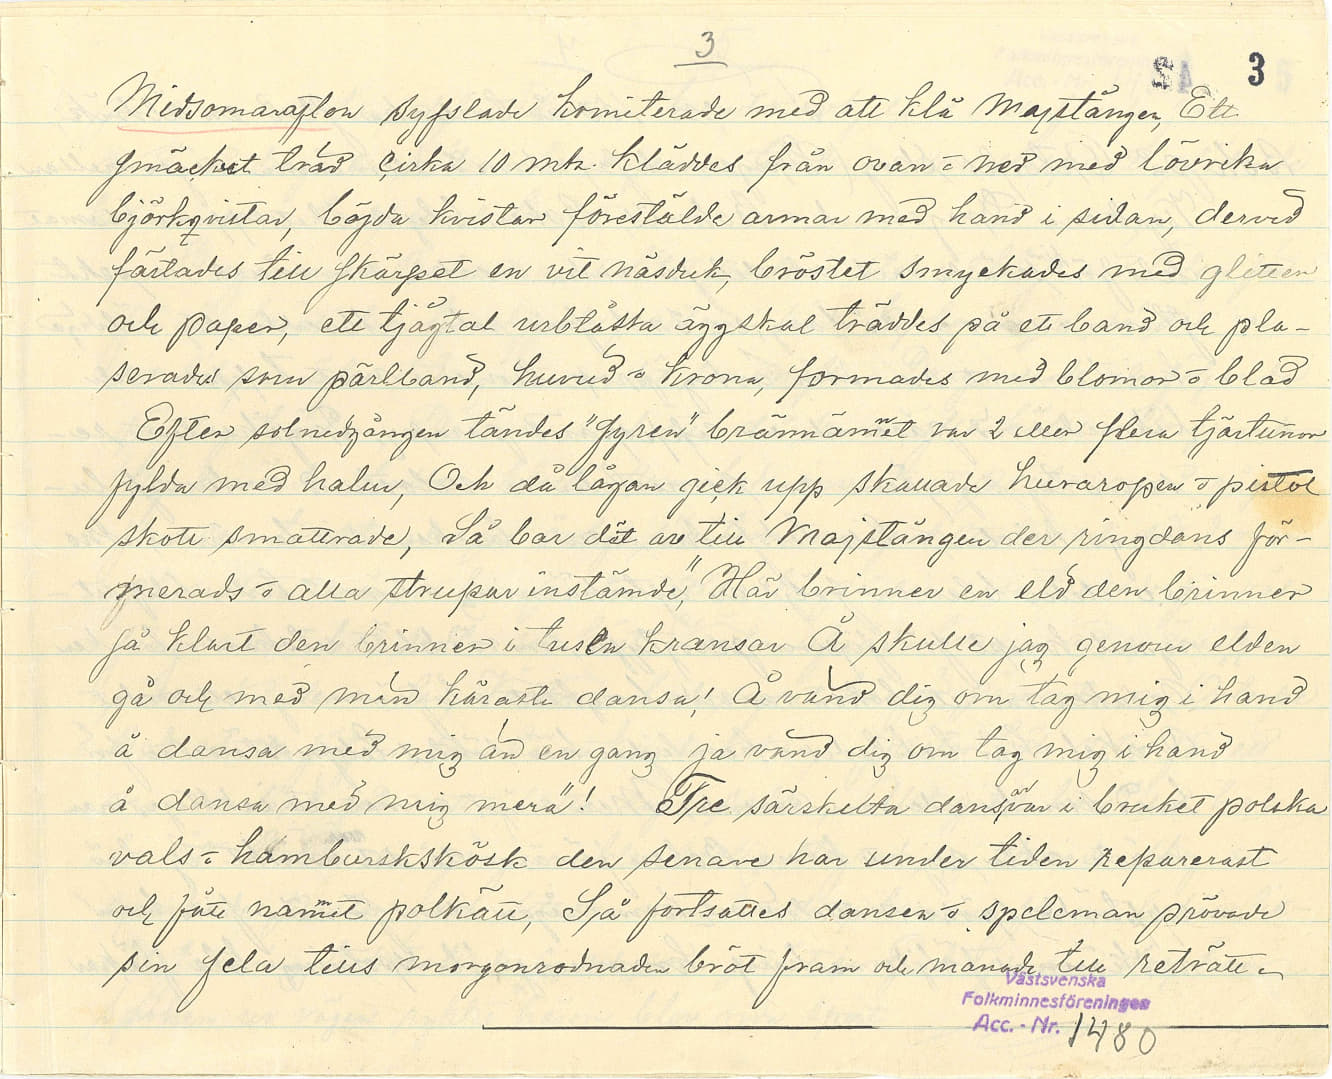 3
SA. 3
Midsomarafton sysslade komiterade med att klä Majstången, Ett
smäckert träd cirka 10 mtr. kläddes från ovan o ned med lövrika
björkqvistar, böjda kvistar förestälde armar med hand i sidan, dervid
fästades till skärpet en vit näsduk, bröstet smyckades med glitter
och paper, ett tjågtal urblåsta äggskal träddes på ett band och pla-
serades som pärlband, huvud o krona, formades med blomor o blad
Efter solnedgången tändes "fyren" brännämnet var 2 eller flera tjärtunnor
fylda med halm, Och då lågan gick upp skallade hurraropen o pistol
skott smattrade, Så bar dät av till Majstången der ringdans för-
merads o alla strupar instämde, "Här brinner en eld den brinner
så klart den brinner i tusen kransar Å skulle jag genom elden
gå och med min käraste dansa! Å vänd dig om tag mig i hand
å dansa med mig än en gang ja vänd dig om tag mig i hand
å dansa med mig mera"! Tre särskelta danser var i bruket polska
vals o hamburskskösk den senare har under tiden reparerast
och fått namnet polkätt, Så fortsattes dansen o speleman prövade
sin fela tills morgonrodnaden bröt fram och manade till reträtt.
Västsvenska
Folkminnesföreningen
Acc. - Nr. 1480